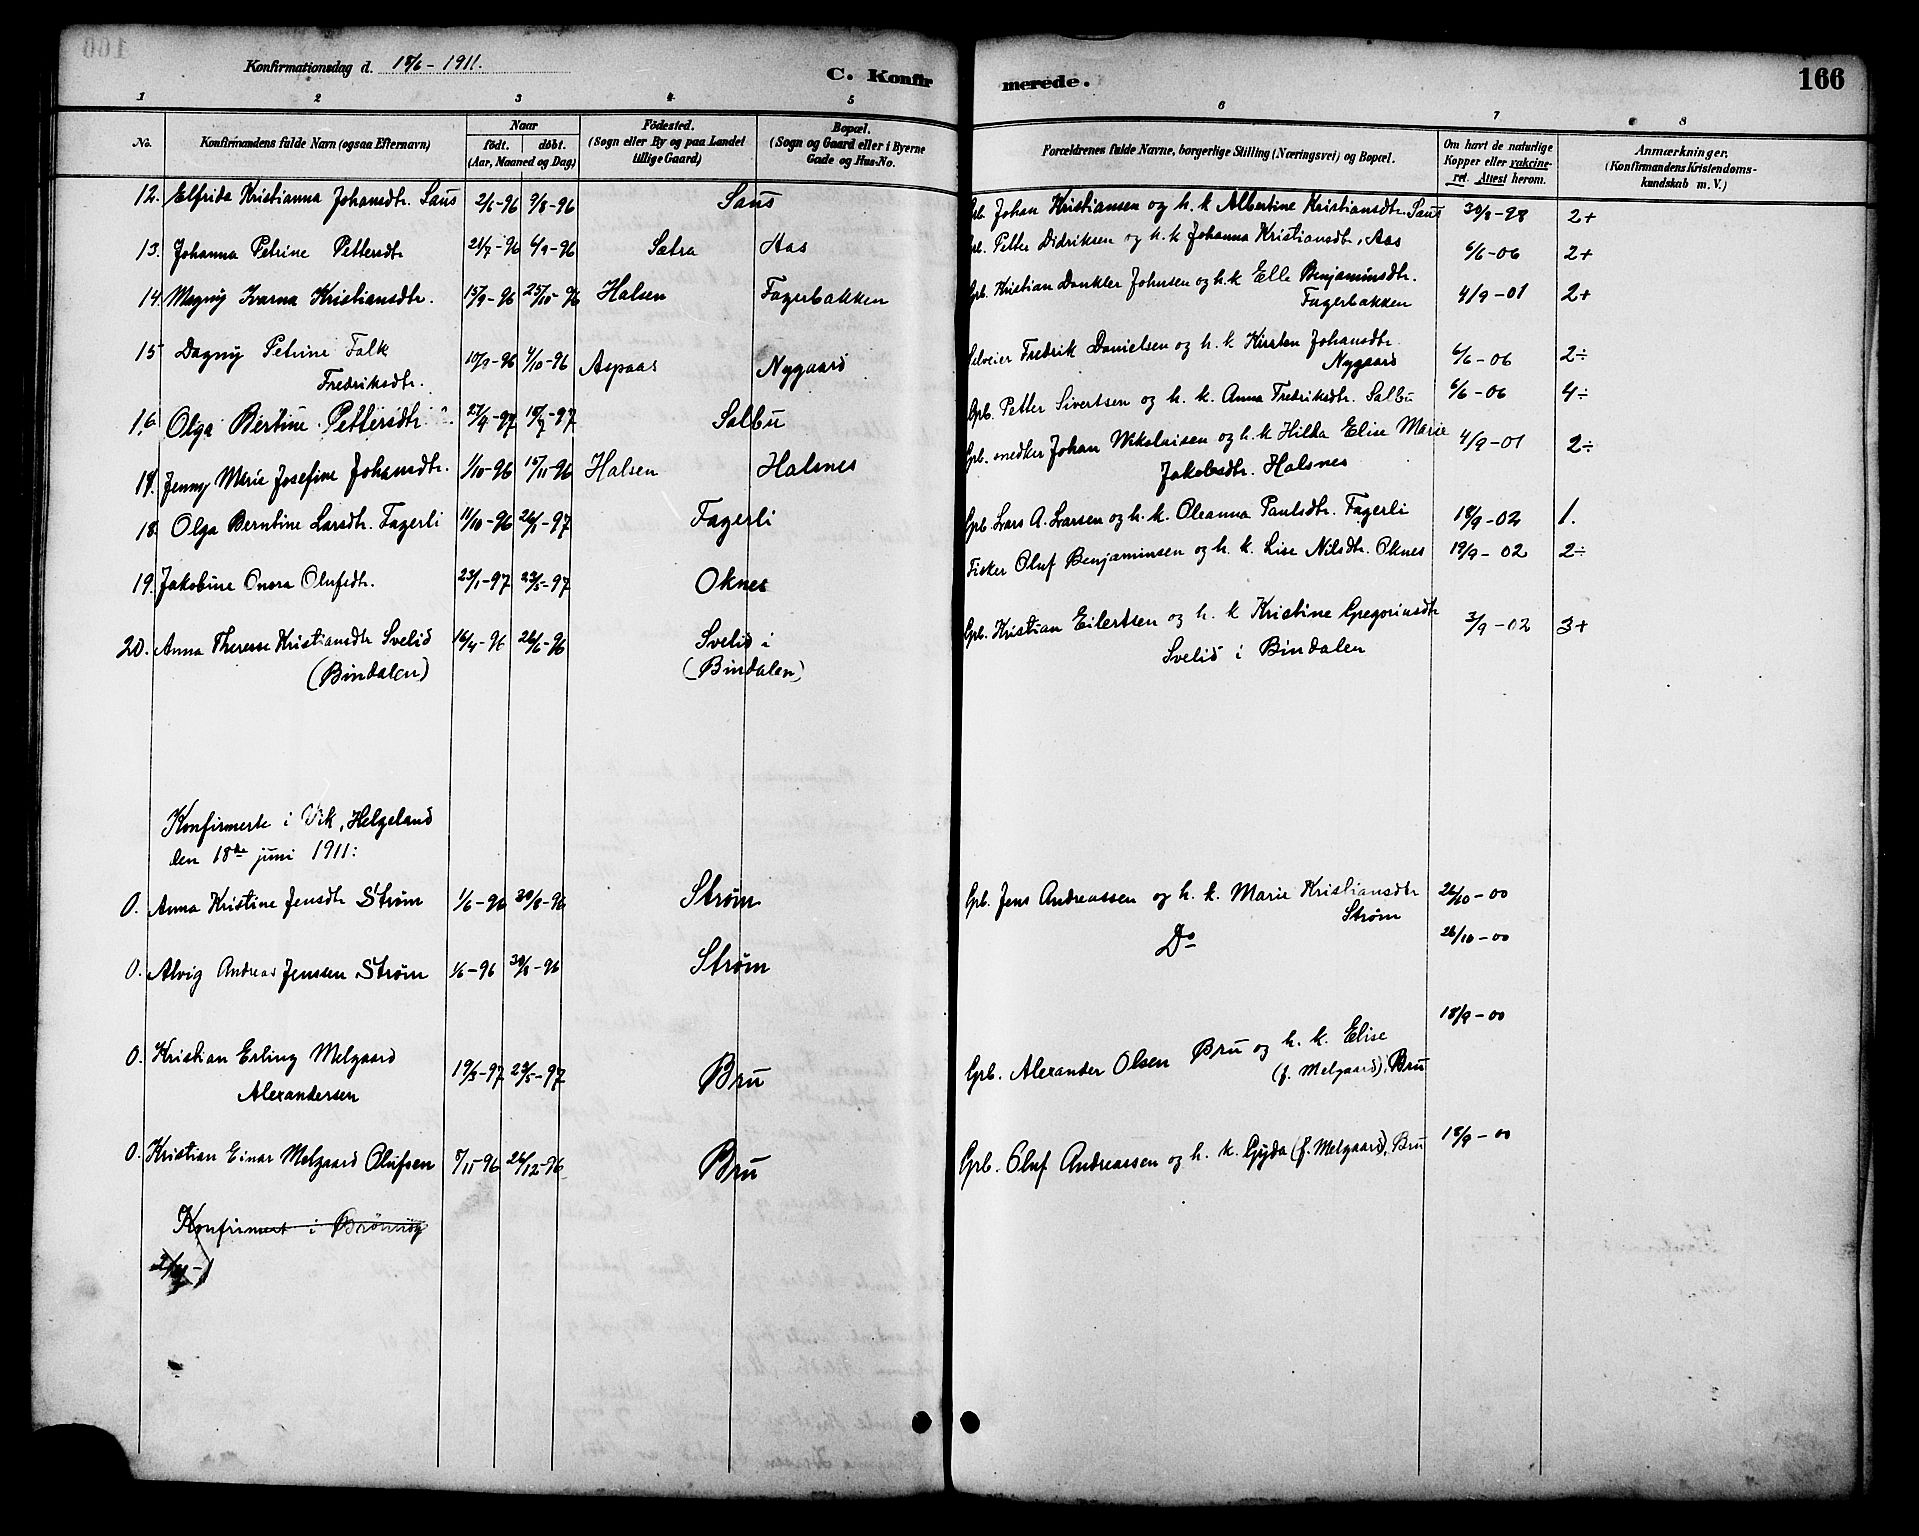 Konfirmationsdag d. 18/6 - 1911.
C. Konfir
merede.
166
1 2 3 4 5 6 7 8
No.
Konfirmandens fulde Navn (ogsaa Efternavn)
Naar
födt. döbt.
(Aar, Maaned og Dag)
Födested.
(Sogn eller By og paa Landet
tillige Gaard)
Bopæl.
(Sogn og Gaard eller i Byerne
Gade og Hus-No.
Forældrenes fulde Navne, borgerlige Stilling (Næringsvei) og Bopæl.
Om havt de naturlige
Kopper eller vakcine-
ret. Attest herom.
Anmærkninger.
(Konfirmandens Kristendoms-
kundskab m. V.)
12. Elfrida Kristianna Johansdtr. Saus 2/6-96 9/8-96 Saus Gpb. Johan Kristiansen og h. k. Albertine Kristiansdtr. Saus 30/8-98 2+
13. Johanna Petrine Pettersdtr 21/7-96 6/9-96 Sætra Aas Gpb. Petter Didriksen og h. k. Johanna Kristiansdtr, Aas 6/6-06 2+
14. Magny Ivarna Kristiansdtr. 15/9-96 25/10-96 Halsen Fagerbakken Gpb. Kristian Dankler Johnsen og h. k. Elle Benjaminsdtr.
Fagerbakken 4/9-01 2+
15 Dagny Petrine Falk
Fredriksdtr. 10/9-96 4/10-96 Aspaas Nygaard Selveier Fredrik Danielsen og h. k. Kirsten Johansdtr.
Nygaard 6/6-06 2÷
16 Olga Bertine Pettersdtr 27/4-97 18/7-97 Salbu Gpb. Petter Sivertsen og h. k. Anna Fredriksdtr. Salbu 6/6-06 4÷
17. Jenny Marie Josefine Johansdtr. 1/10-96 15/11-96 Halsen Halsnes Gpb. snedker Johan Nikolaisen og h. k. Hilda Elise Marie
Jakobsdtr. Halsnes 4/9-01 2÷
18. Olga Berntine Larsdtr. Fagerli 11/10-96 26/1-97 Fagerli Gpb. Lars A. Larsen og h. k. Oleanna Paulsdtr. Fagerli 18/9-02 1.
19. Jakobine Onora Olufsdtr. 23/1-97 23/5-97 Oknes Fisker Oluf Benjaminsen og h. k. Lise Nilsdtr. Oknes 19/9-02 2÷
20. Anna Therese Kristiansdtr Svelid
(Bindalen) 16/4-96 26/6-96 Svelid i
(Bindalen) Gpb. Kristian Eilertsen og h. k. Kristine Gregoriusdtr
Svelid i Bindalen 3/9-02 3+
Konfirmerte i Vik, Helgeland
den 18de juni 1911:
0. Anna Kristine Jensdtr Strøm 1/6-96 30/8-96 Strøm Gpb. Jens Andreassen og h. k. Marie Kristiansdtr
Strøm 26/10-00
0. Alvig Andreas Jenssen Strøm 1/6-96 30/8-96 Strøm Do 26/10-00
0. Kristian Erling Melgaard
Alexandersen 19/3-97 23/5-97 Bru Gpb. Alexander Olsen Bru og h. k. Elise
(f. Melgaard), Bru 18/9-00
0. Kristian Einar Melgaard Olufsen 5/11-96 26/12-96 Bru Gpb. Oluf Andreassen og h. k. Gyda (f. Melgaard), Bru 18/9-00
Konfirmert i Brønnøy